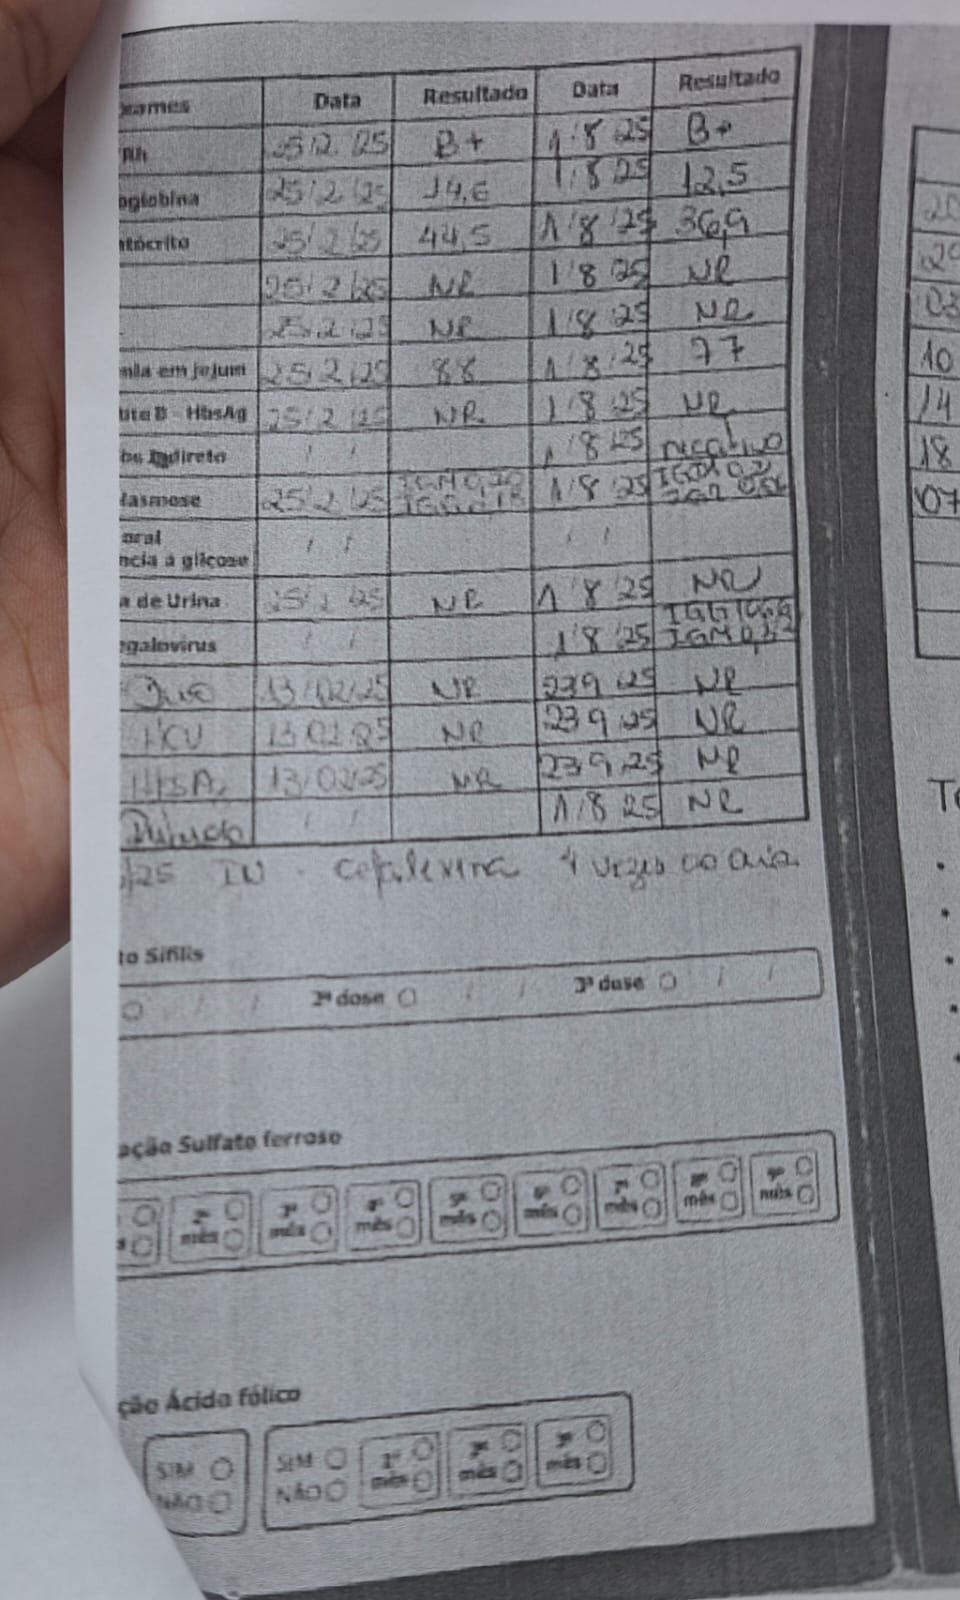 xames Data Resultado Data Resultado
Rh 25/2/25 B+ 1/8/25 B+
oglobina 25/2/25 14,6 1/8/25 12,5
atócrito 25/2/25 44,5 1/8/25 36,9
25/2/25 NR 1/8/25 NR
25/2/25 NR 1/8/25 NR
mia em jejum 25/2/25 88 1/8/25 77
tite B - HbsAg 25/2/25 NR 1/8/25 NR
bs Indireto / / 1/8/25 negativo
lasmose 25/2/25 IGM 0,20 IGG 1/8/25 IGM IGG
oral
ncia à glicose / / / /
a de Urina 25/2/25 NR 1/8/25 NR
galovírus / / 1/8/25 IGG IGM
13/02/25 NR 23/9/25 NR
HCV 13/02/25 NR 23/9/25 NR
HBSAg 13/02/25 NR 23/9/25 NR
/ / 1/8/25 NR
/25 cefalexina 4 vezes ao dia
to Sífilis
/ / 2ª dose / / 3ª dose / /
ação Sulfato ferroso
2º mês 3º mês 4º mês 5º mês 6º mês 7º mês 8º mês 9º mês
ção Ácido fólico
SIM SIM 1º mês 2º mês 3º mês
NÃO NÃO
20
29
03
10
14
18
07